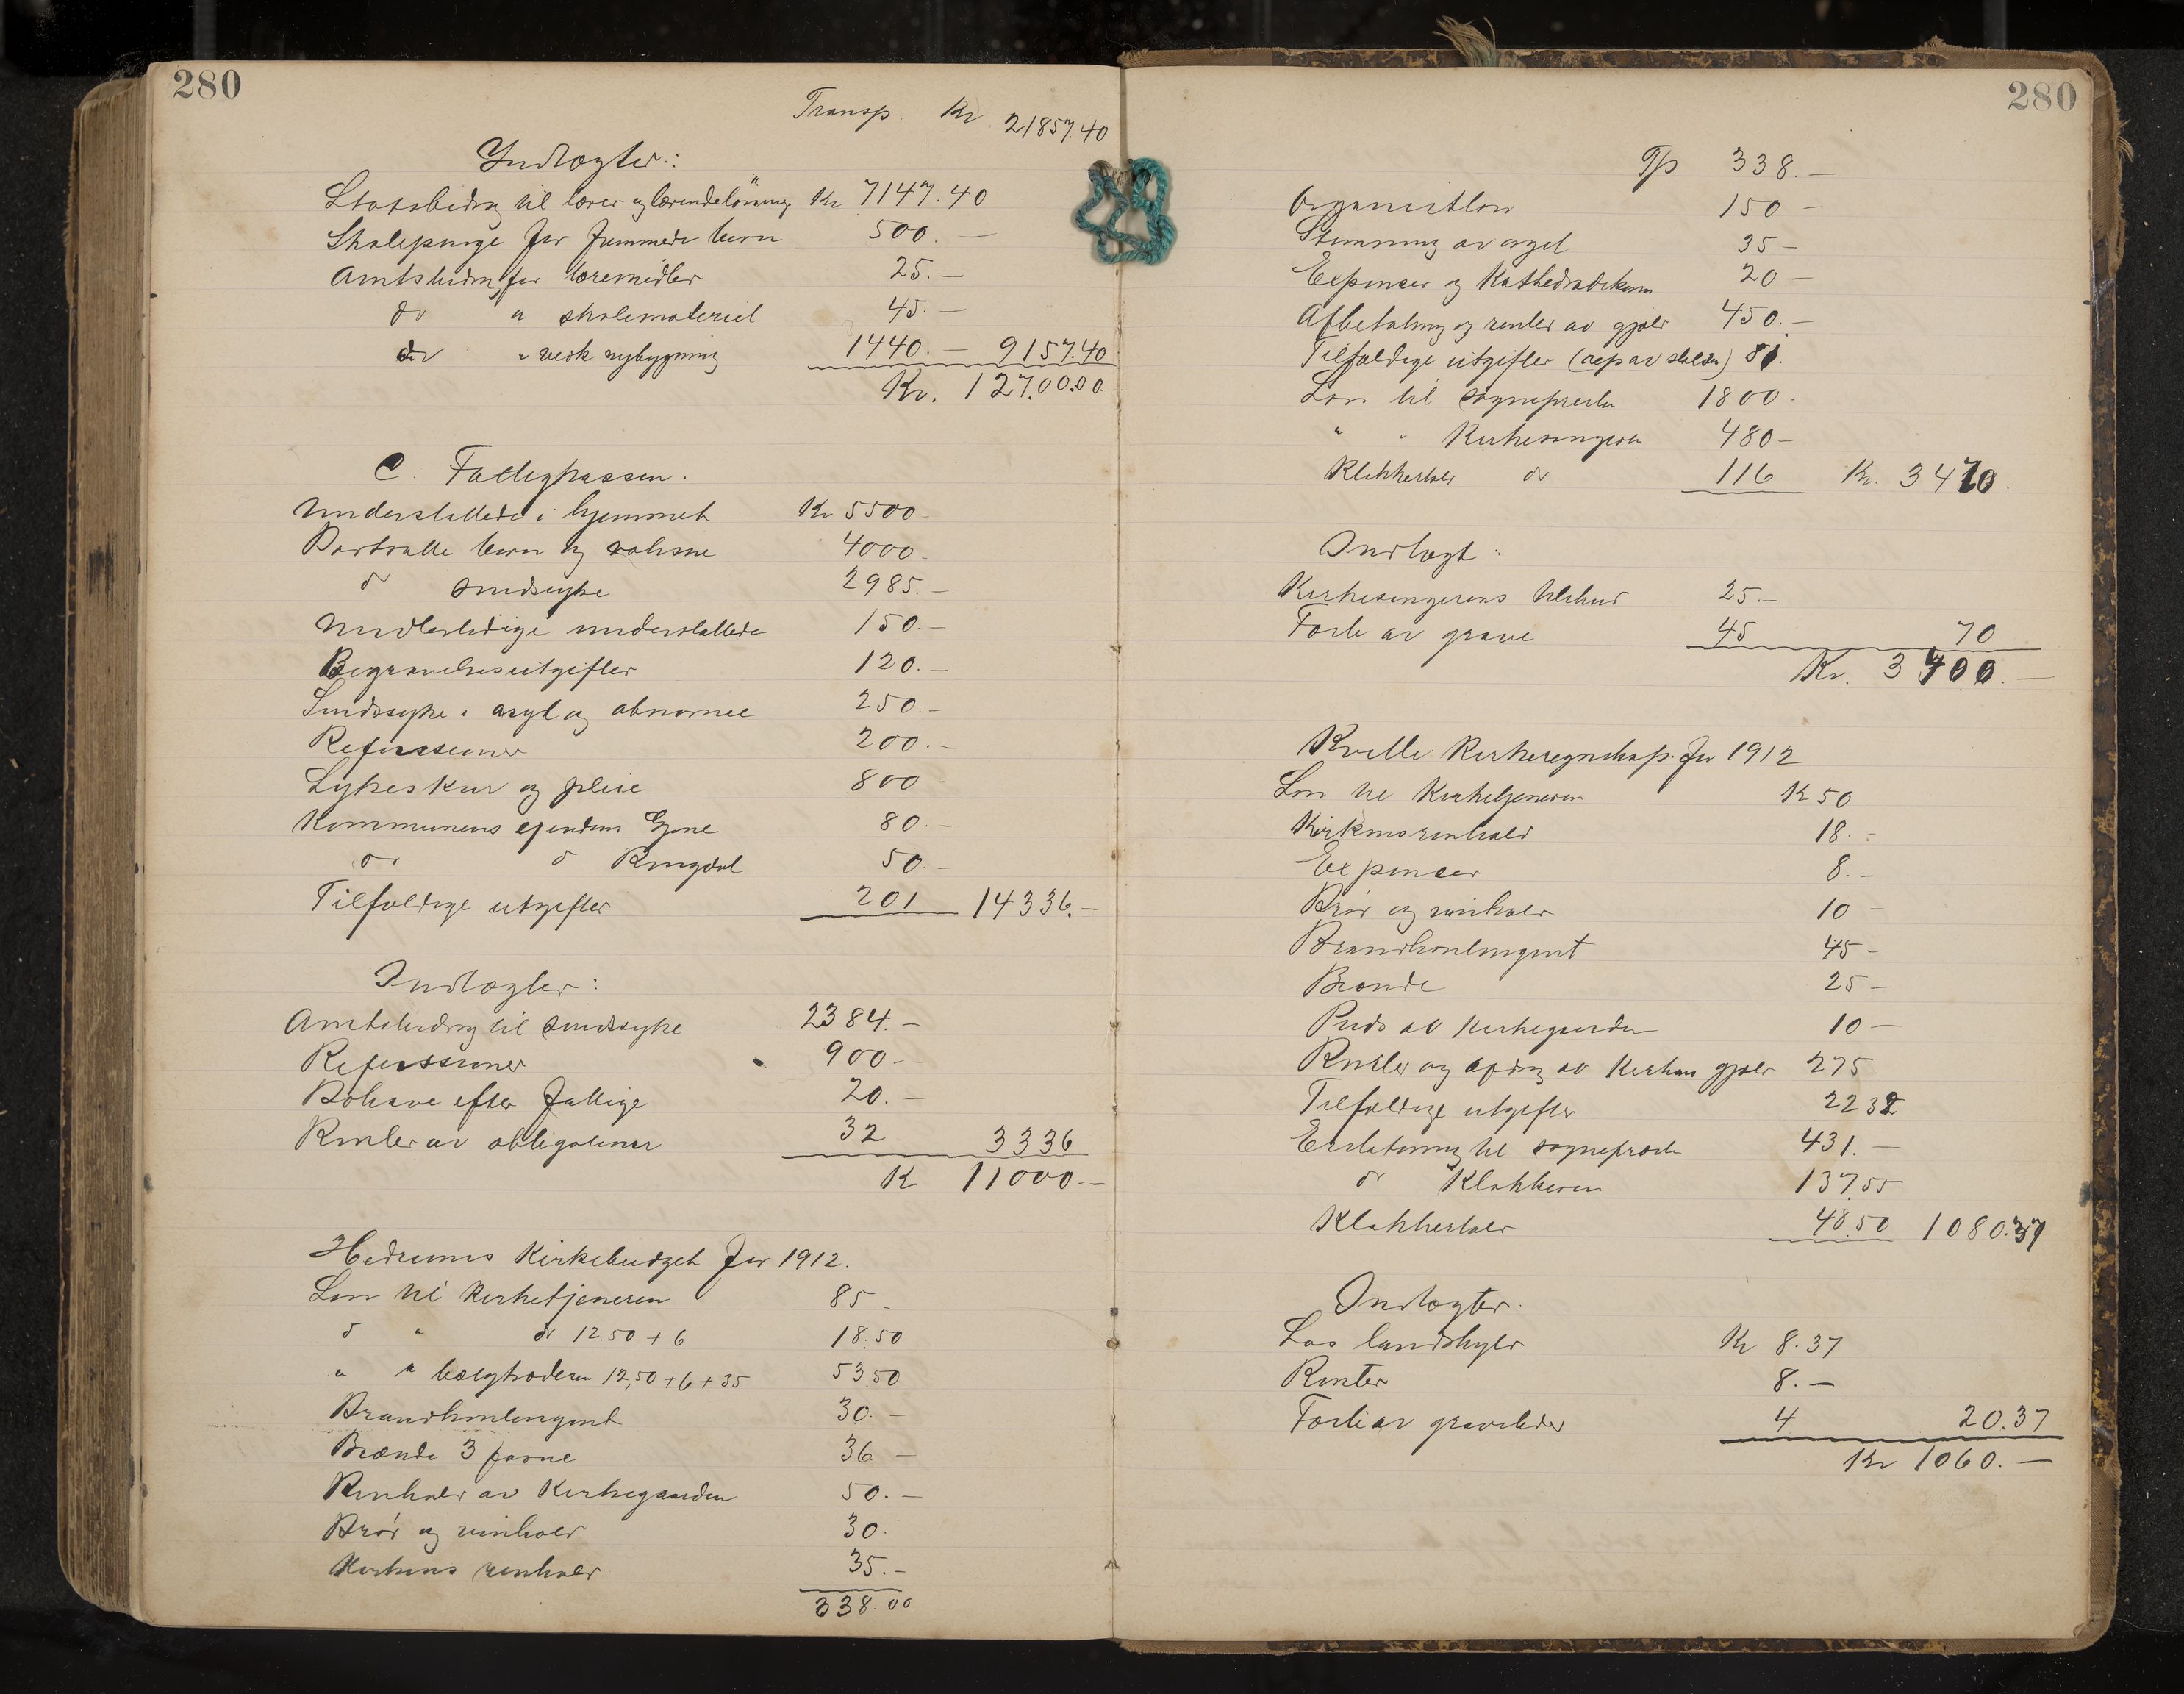 280
Transp. Kr 21857.40
Indtægter:
Statsbidrag til lærer og lærerindelønning Kr 7147.40
Skolepenge for fremmede børn 500.—
Amtsbidrag for læremidler 25.—
do " skolemateriel 45.—
do " nybygning 1440.— 9157.40
Kr. 12700.00
C. Fattigkassen.
Understøttede i hjemmet Kr 5500
Bortsatte børn og voksne 4000-
d sindsyke 2985.—
Midlertidige understøttede 150.—
Begravelsesutgifter 120.—
Sindssyke i asyl og abnorme 250.—
Refusioner 200.—
Sykes kur og pleie 800
Kommunens ejendom 80.—
do d Ringdal 50.—
Tilfældige utgifter 201 14336.—
Indtægter:
Amtsbidrag til sindssyke 2384.—
Refusioner 900-
Bohave efter fattige 20.—
Renter av obligationer 32 3336
K 11000.—
Hedrums Kirkebudget for 1912.
Løn til Kirketjeneren 85-
d " do 12.50 + 6 18.50
" " bælgtræderen 12,50 + 6 + 35 53.50
Brandkontingent 30.—
Brænde 3 favne 36—
Renhold av Kirkegaarden 50.—
Brød og vinhold 30.
Kirkens renhold 35.—
338.00
280
Tp 338.—
Organistløn 150—
Stemning av orgel 35—
Expenser og 20—
Afbetaling og renter av gjæld 450.—
Tilfældige utgifter (rep av stalden) 81.
Løn til sogneprest 1800-
" " Kirkesangeren 480—
Klokkerhold do 116 Kr. 3470
Indtægt:
Kirkesangerens tilskud 25.—
Fæste av grave 45 70
Kr. 3400.—
Kvelle Kirkeregnskap for 1912
Løn til Kirketjeneren K 50
Kirkens renhold 18.-
Expenser 8.—
Brød og vinhold 10—
Brandkontingent 45—
Brænde 25—
Puds av Kirkegaarden 10—
Renter og afdrag av Kirkens gjæld 275
Tilfældige utgifter 22 32
Erstatning til sogneprest 431.—
do Klokkeren 137.55
Klokkerhold 48.50 1080.37
Indtægter.
Løs landskyld Kr 8.37
Renter 8.—
Fæste av gravsteder 4 20.37
Kr 1060.—